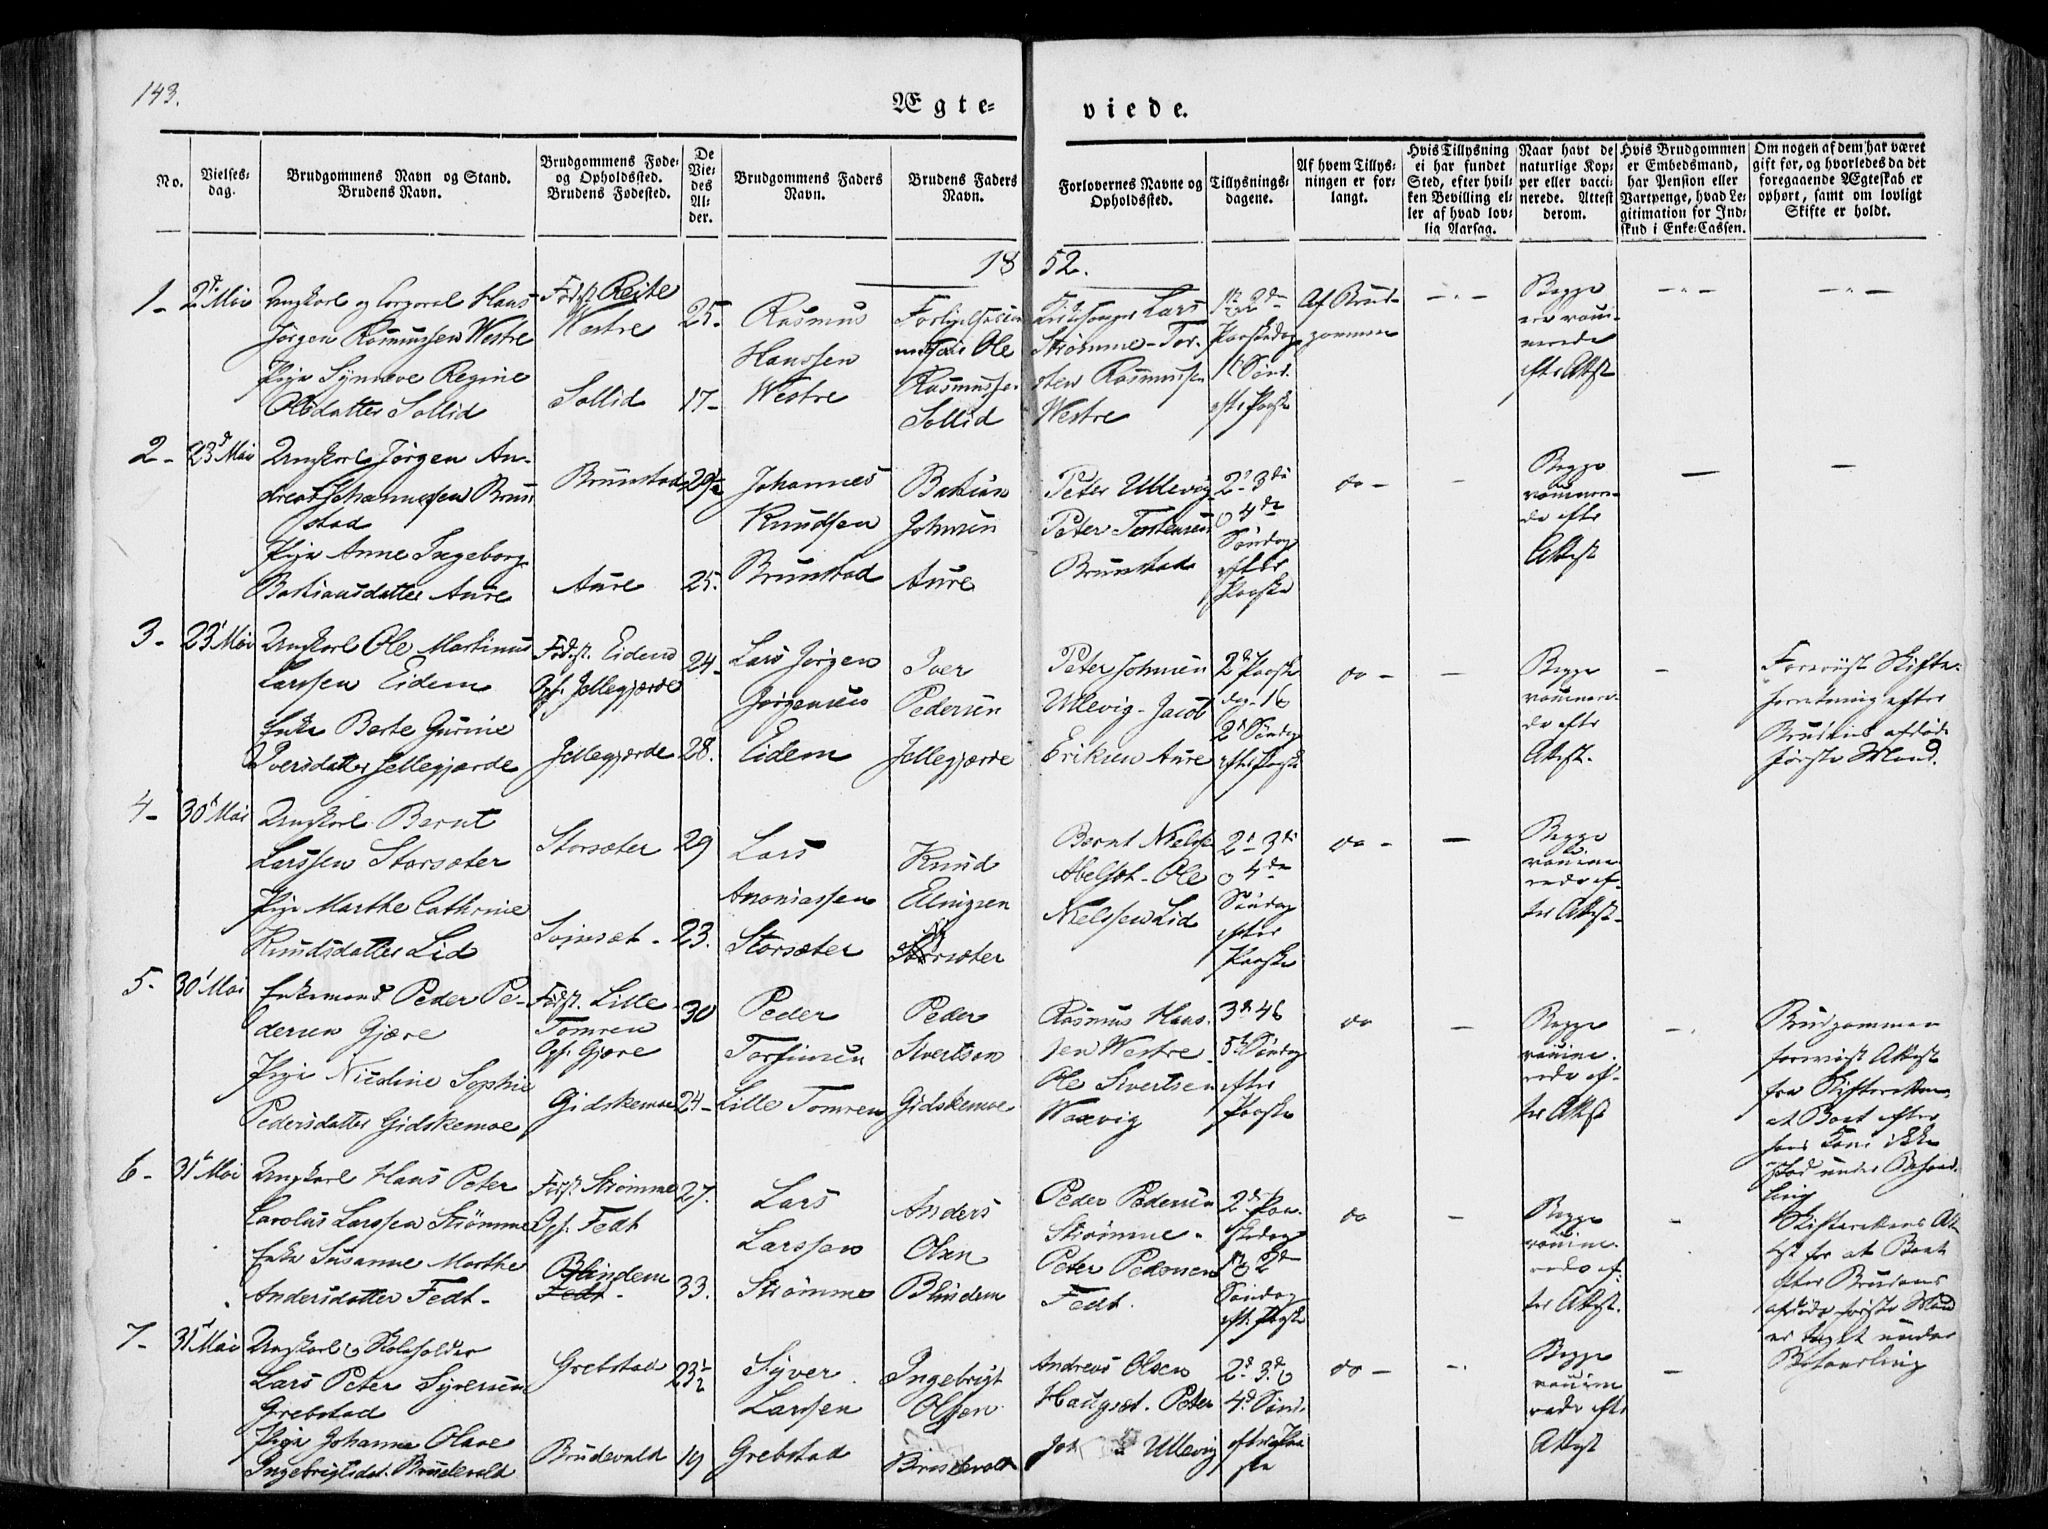 143.
Ægte=
viede.
No.
Vielses=
dag.
Brudgommens Navn og Stand.
Brudens Navn.
Brudgommens Føde=
og Opholdssted.
Brudens Fødested.
De
Vie=
des
Al=
der.
Brudgommens Faders
Navn.
Brudens Faders
Navn.
Forlovernes Navne og
Opholdssted.
Tillysnings=
dagene.
Af hvem Tillys=
ningen er for=
langt.
Hvis Tillysning
ei har fundet
Sted, efter hvil=
ken Bevilling el=
ler af hvad lov=
lig Aarsag.
Naar havt de
naturlige Kop=
per eller vacci=
nerede. Attest
derom.
Hvis Brudgommen
er Embedsmand,
har Pension eller
Vartpenge, hvad Le=
gitimation for Ind=
skud i Enke=Cassen.
Om nogen af dem har været
gift før, og hvorledes da det
foregaaende Ægteskab er
ophørt, samt om lovligt
Skifte er holdt.
1852.
1-
2d Mai
Ungkarl og Corporal Hans
Jørgen Rasmussen Westre
Pige Synneve Regine
Olsdatter Sollid
Fødst. Reite
Westre
Sollid
25-
17-
Rasmus
Hanssen
Westre
Ole
Rasmussen
Sollid
Kirkesanger Lars
Strømme- Tor-
sten Rasmussen
Westre
1st 2den
Paaskedag
1st Sønd.
eft. Paaske
Af Brud-
gommen
Begge
ere vacci-
nerede
efter Attest
2-
23d Mai
Ungkarl Jørgen An-
dreas Johannessen Brun-
stad
Pige Anne Ingeborg
Bastiansdatter Aure
Brunstad
Aure
29½
25.
Johannes
Knudsen
Brunstad
Bastian
Johnsen
Aure
Peter Ullevig
Peter Torstensen
Brunstad
2d 3die
o 4de
Søndag
efter
Paaske
do -
Begge
vaccinere-
de efter
Attest
3-
23d Mai
Ungkarl Ole Martinus
Larssen Eidem
Enke Berte Gurine
Iversdatter Jellegjærde
Fødst. Eidem
Opf. Jellegjærde
Jellegjærde
24-
28.
Lars Jørgen
Jørgensen
Eidem
Iver
Pedersen
Jellegjærde
Peter Johnsen
Ullevig- Jacob
Eriksen Aure
2d Paaske
dag- 1 o
2d Søndag
efter Paaske
do -
Begge
vaccinere-
de efter
Attest.
Foreviist Skifte-
forretning efter
Brudens afdøde
første Mand.
4-
30d Mai
Ungkarl Bernt
Larssen Storsæter
Pige Marthe Cathrine
Knudsdatter Lid
Storsæter
29
23.
Lars
Ananiassen
Storsæter
Knud
Storsæter
Bernt Nielsen
Ole
Nielssen Lid
2d 3die
o 4de
Søndag
efter
Paaske
do -
Begge
vaccine-
rede ef-
ter Attest-
5-
30d Mai
Enkemand Peder Pe-
dersen Gjære
Pige Nicoline Sophie
Pedersdatter Gidskemoe
Fødst. Lille
Tomren
Opf. Gjære
Gidskemoe
30
24-
Peder
Torfinsen
Lille Tomren
Peder
Sivertsen
Gidskemoe
Rasmus Hans-
sen Westre-
Ole Sivertsen
Waxvig
3d 4 o
5te Søndag
efter
Paaske
do
Begge
vaccine-
rede ef-
ter Attest
Brudgommen
foreviist Attest
fra Skifteretten
at Boet efter
hans Kone ikke
stod under Behand-
ling
6-
31d Mai
Ungkarl Hans Peter
Carolus Larssen Strømme
Enke Susanne Marthe
Andersdatter Fedt-
Fødst. Strømme
Opf. Fedt
Blindem
Fedt-
27.
33.
Lars
Larssen
Strømme
Anders
Olsen
Blindem
Peder Pedersen
Strømme-
Peter Pedersen
Fedt.
2d Paa-
skedag
1st o 2den
Søndag
eft. Paaske
do
Begge
vaccine-
rede ef-
ter Attest.
Skifterettens At-
test for at Boet
efter Brudens
afdøde første Mand
er taget under
Behandling
7-
31d Mai
Ungkarl o Skoleholder
Lars Peter Syversen
Grebstad
Pige Johanne Olave
Ingebrigtsdat. Brudevold
Grebstad
Brudevold
23½
19
Syver
Larssen
Grebstad
Ingebrigt
Olssen
Brudevold
Andreas Olsen
Haugset. Peter
Joh Ullevig
2d 3d o
4d Sønd.
efter Paa
ske
do -
Begge
vaccine
rede efter
Attest